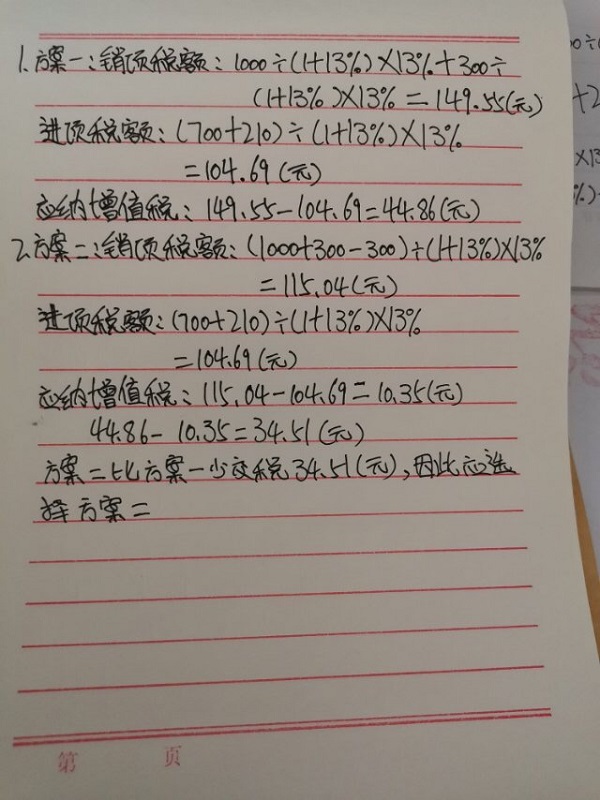 1.方案一:销项税额:1000÷(1+13%)×13%+300÷
(1+13%)×13%=149.55(元)
进项税额:(700+210)÷(1+13%)×13%
=104.69(元)
应纳增值税:149.55-104.69=44.86(元)
2.方案二:销项税额:(1000+300-300)÷(1+13%)×13%
=115.04(元)
进项税额:(700+210)÷(1+13%)×13%
=104.69(元)
应纳增值税:115.04-104.69=10.35(元)
44.86-10.35=34.51(元)
方案二比方案一少交税34.51(元),因此应选
择方案二
第 页